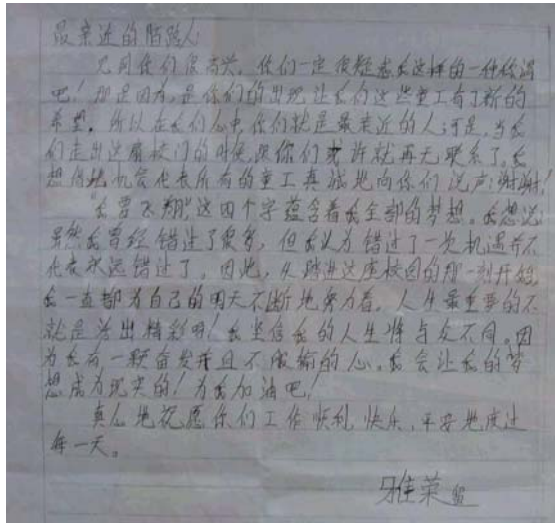 最亲近的陌路人:
见到你们很高兴。你们一定很疑惑我这样的一种称谓
吧!那是因为,是你们的出现让我们这些童工有了新的
希望。所以在我们心中你们就是最亲近的人;可是,当我
们走出这扇校门的时候跟你们或许就再无联系了。我
想借此机会代表所有的童工真诚地向你们说声:谢谢!
“我要飞翔”这四个字蕴含着我全部的梦想。我想说:
虽然我曾经错过了很多,但我认为错过了一次机遇并不
代表永远错过了。因此,从踏进这座校园的那一刻开始,
我一直都为自己的明天不断地努力着。人生最重要的不
就是活出精彩吗!我坚信我的人生将与众不同。因
为我有一颗奋发并且不服输的心。我会让我的梦
想成为现实的!为我加油吧!
真心地祝愿你们工作顺利 快乐、平安地度过
每一天。
雅荣